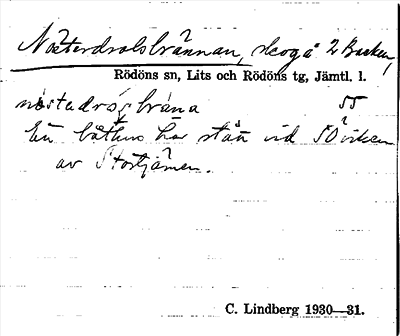 Nösterdrolsbrännan, skog å 2 Backen,
Rödöns sn, Lits och Rödöns tg, Jämtl. l.
55
En båthus har stån vid SÖ viken
av Stortjärnen.
C. Lindberg 1930—31.